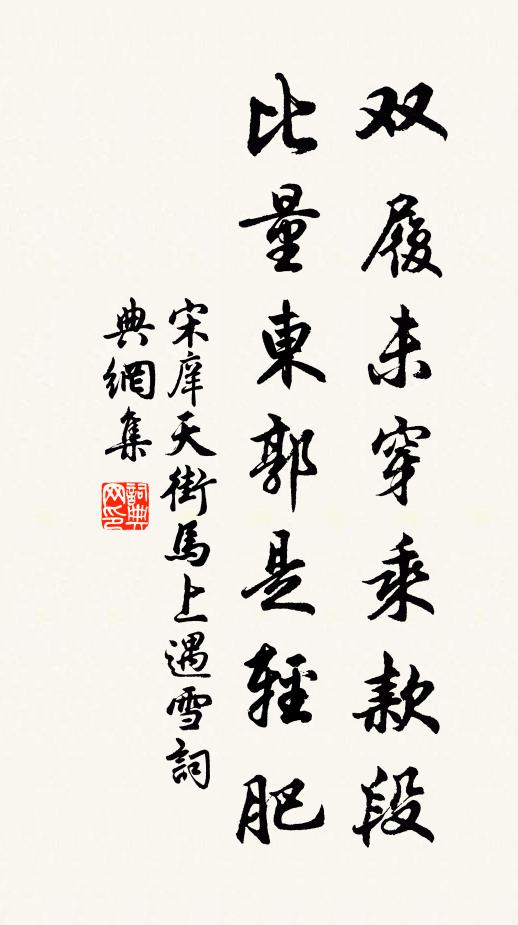 双履未穿乘款段
比量東郭是輕肥
宋庠天街馬上遇雪詞
典網集
詞典
网印